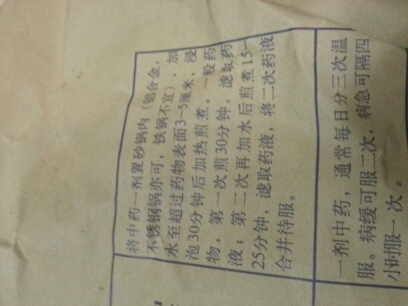 将中药一剂置砂锅内（铝合金，
不锈钢锅亦可，铁锅不宜），加
水至超过药物表面3-5厘米，浸
泡30分钟后加热煎煮。一般药
物，第一次煎30分钟，滤取药
液；第二次再加水后煎煮15-
25分钟，滤取药液，将二次药液
合并待服。
一剂中药，通常每日分三次温
服。病缓可服二次，病急可隔四
小时服一次。